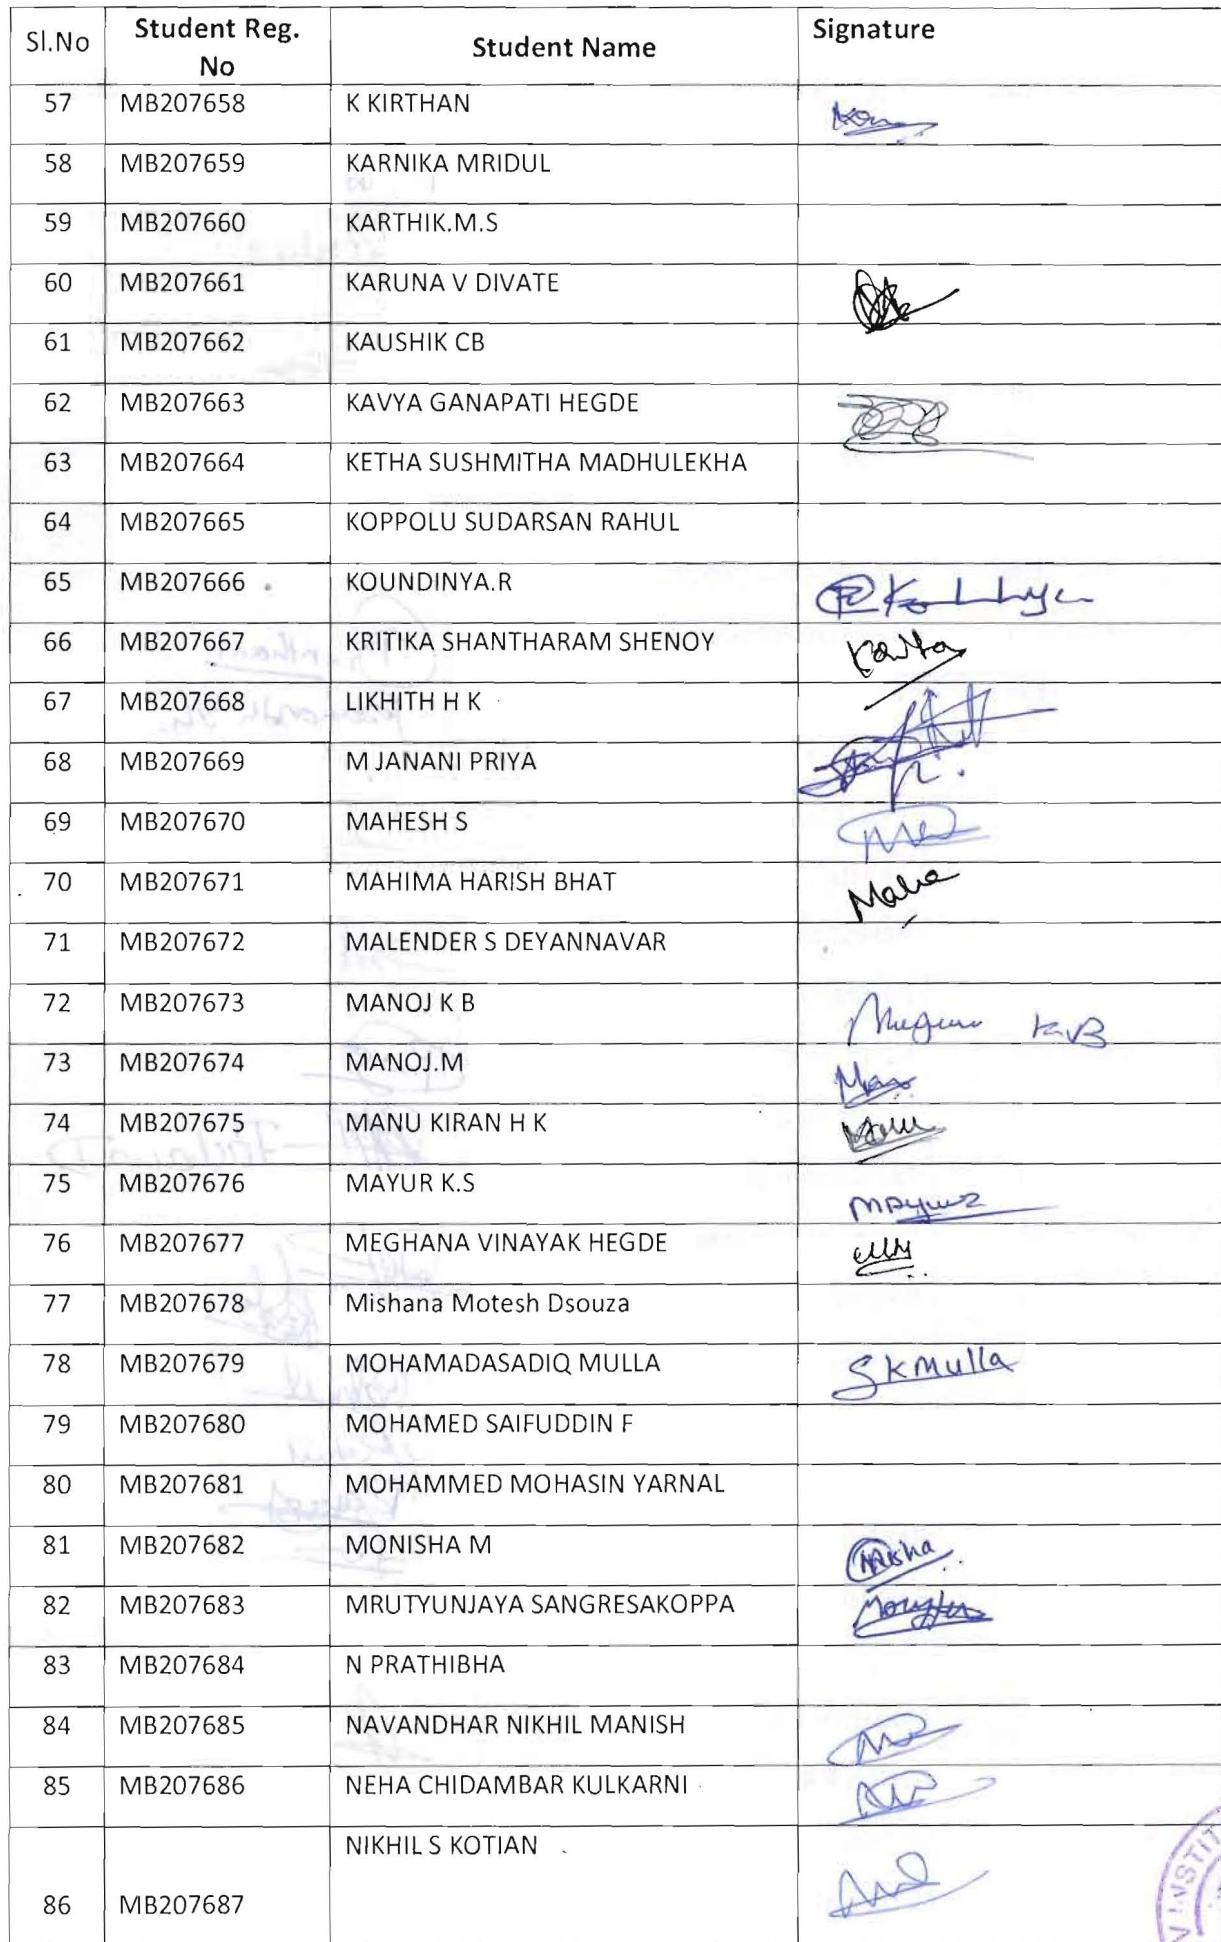 Sl.No Student Reg. No Student Name Signature
57 MB207658 K KIRTHAN
58 MB207659 KARNIKA MRIDUL
59 MB207660 KARTHIK.M.S
60 MB207661 KARUNA V DIVATE
61 MB207662 KAUSHIK CB
62 MB207663 KAVYA GANAPATI HEGDE
63 MB207664 KETHA SUSHMITHA MADHULEKHA
64 MB207665 KOPPOLU SUDARSAN RAHUL
65 MB207666 KOUNDINYA.R
66 MB207667 KRITIKA SHANTHARAM SHENOY
67 MB207668 LIKHITH H K
68 MB207669 M JANANI PRIYA
69 MB207670 MAHESH S
70 MB207671 MAHIMA HARISH BHAT
71 MB207672 MALENDER S DEYANNAVAR
72 MB207673 MANOJ K B
73 MB207674 MANOJ.M
74 MB207675 MANU KIRAN H K
75 MB207676 MAYUR K.S
76 MB207677 MEGHANA VINAYAK HEGDE
77 MB207678 Mishana Motesh Dsouza
78 MB207679 MOHAMADASADIQ MULLA SKMulla
79 MB207680 MOHAMED SAIFUDDIN F
80 MB207681 MOHAMMED MOHASIN YARNAL
81 MB207682 MONISHA M
82 MB207683 MRUTYUNJAYA SANGRESAKOPPA
83 MB207684 N PRATHIBHA
84 MB207685 NAVANDHAR NIKHIL MANISH
85 MB207686 NEHA CHIDAMBAR KULKARNI
86 MB207687 NIKHIL S KOTIAN